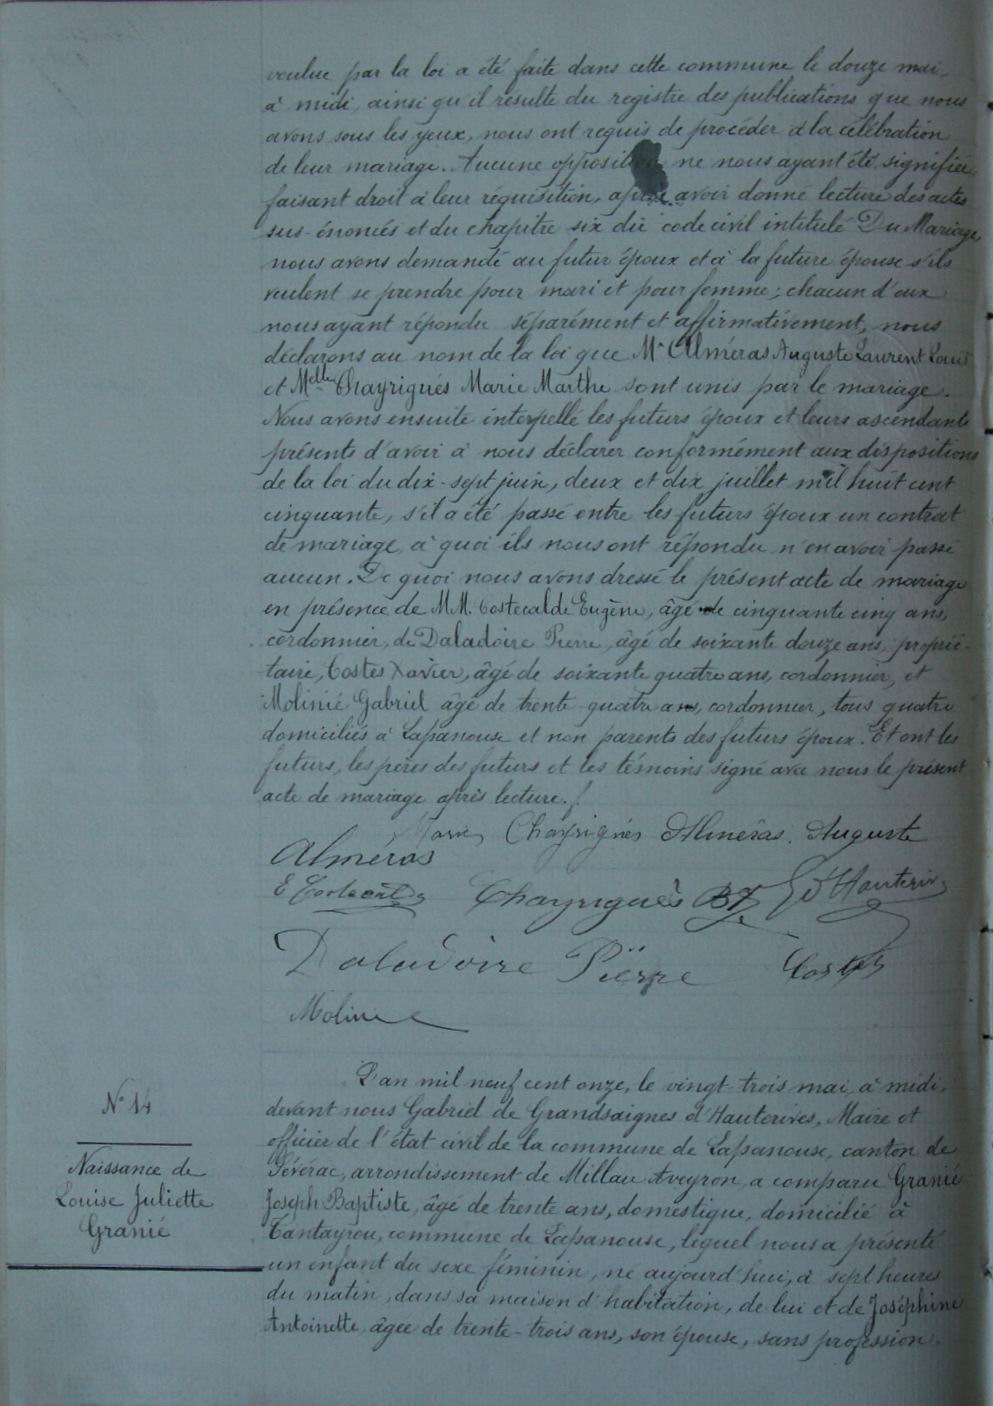 voulue par la loi a été faite dans cette commune le douze mai,
à midi, ainsi qu'il résulte du registre des publications que nous
avons sous les yeux, nous ont requis de procéder à la célébration
de leur mariage. Aucune opposition ne nous ayant été signifiée,
faisant droit à leur réquisition, après avoir donné lecture des actes
sus-énoncés et du chapitre six du code civil intitulé Du Mariage,
nous avons demandé au futur époux et à la future épouse s'ils
veulent se prendre pour mari et pour femme; chacun d'eux
nous ayant répondu séparément et affirmativement, nous
déclarons au nom de la loi que Mr Alméras Auguste Laurent Louis
et Melle Chayriguès Marie Marthe sont unis par le mariage.
Nous avons ensuite interpellé les futurs époux et leurs ascendants
présents d'avoir à nous déclarer conformément aux dispositions
de la loi du dix-sept juin, deux et dix juillet mil huit cent
cinquante, s'il a été passé entre les futurs époux un contrat
de mariage, à quoi ils nous ont répondu n'en avoir passé
aucun. De quoi nous avons dressé le présent acte de mariage
en présence de MM. Costecalde Eugène, âgé de cinquante cinq ans,
cordonnier, de Daladoire Pierre, âgé de soixante douze ans, proprié-
taire, Costes Xavier, âgé de soixante quatre ans, cordonnier, et
Molinié Gabriel âgé de trente-quatre ans, cordonnier, tous quatre
domiciliés à Lapanouse et non parents des futurs époux. Et ont les
futurs, les pères des futurs et les témoins signé avec nous le présent
acte de mariage après lecture.
Marie Chayriguès Alméras Auguste
Alméras
E Costecalde Chayriguès BJ G d'Hauterives
Daladoire Pierre Costes
Molinié
N° 14
Naissance de
Louise Juliette
Granié
L'an mil neuf cent onze, le vingt-trois mai, à midi,
devant nous Gabriel de Grandsaignes d'Hauterives, Maire et
officier de l'état civil de la commune de Lapanouse, canton de
Sévérac, arrondissement de Millau Aveyron, a comparu Granié
Joseph Baptiste, âgé de trente ans, domestique, domicilié à
Tantayrou, commune de Lapanouse, lequel nous a présenté
un enfant du sexe féminin, né aujourd'hui, à sept heures
du matin, dans sa maison d'habitation, de lui et de Joséphine
Antoinette âgée de trente-trois ans, son épouse, sans profession